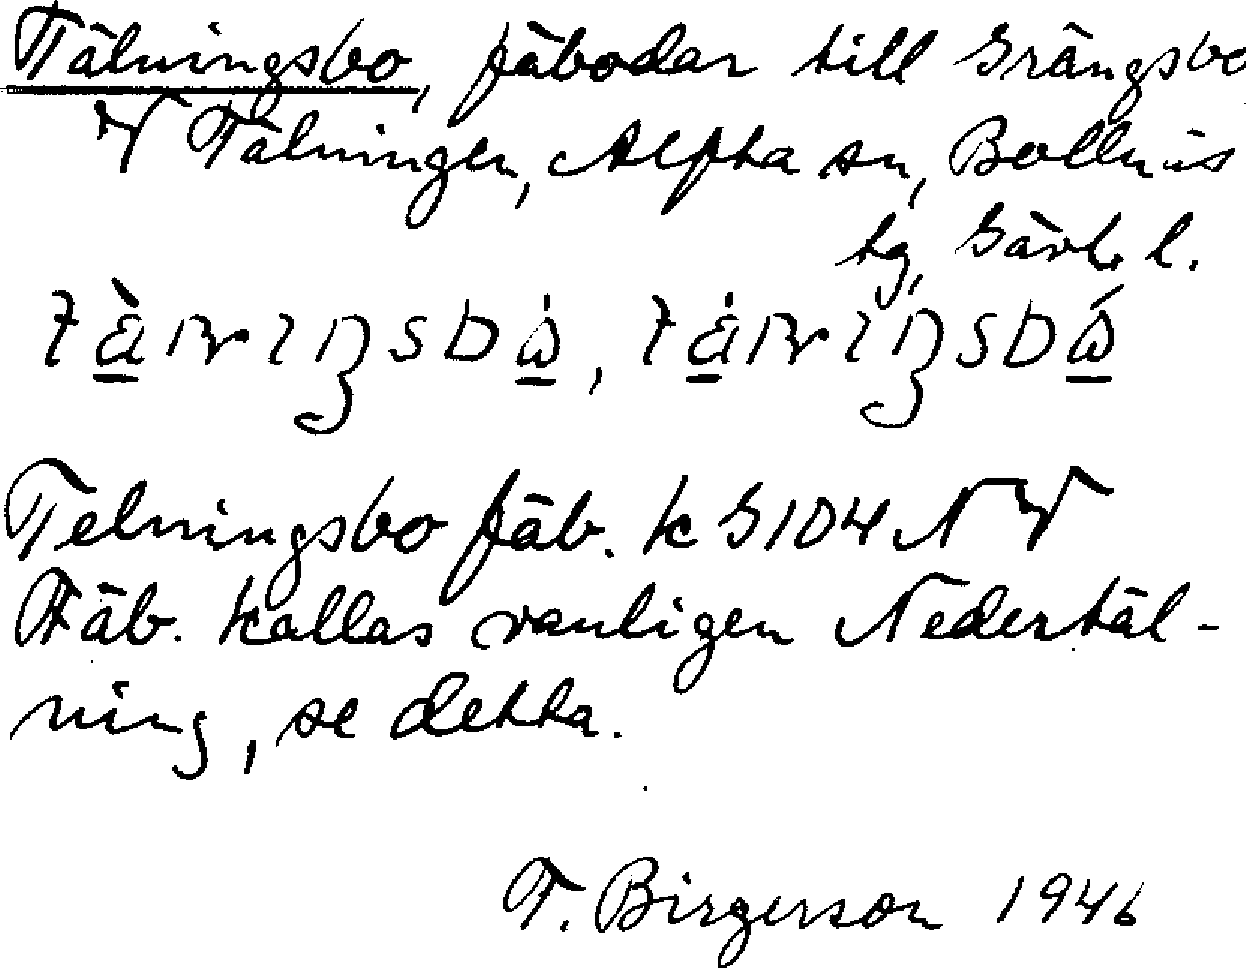 Tälningsbo, fäbodar till Grängsbo
V Tälningen, Alfta sn, Bollnäs
tg, Gävleb. l.
Telningsbo fäb. k G 104 N V
Fäb. kallas vanligen Nedertäl-
ning, se detta.
T. Birgerson 1946